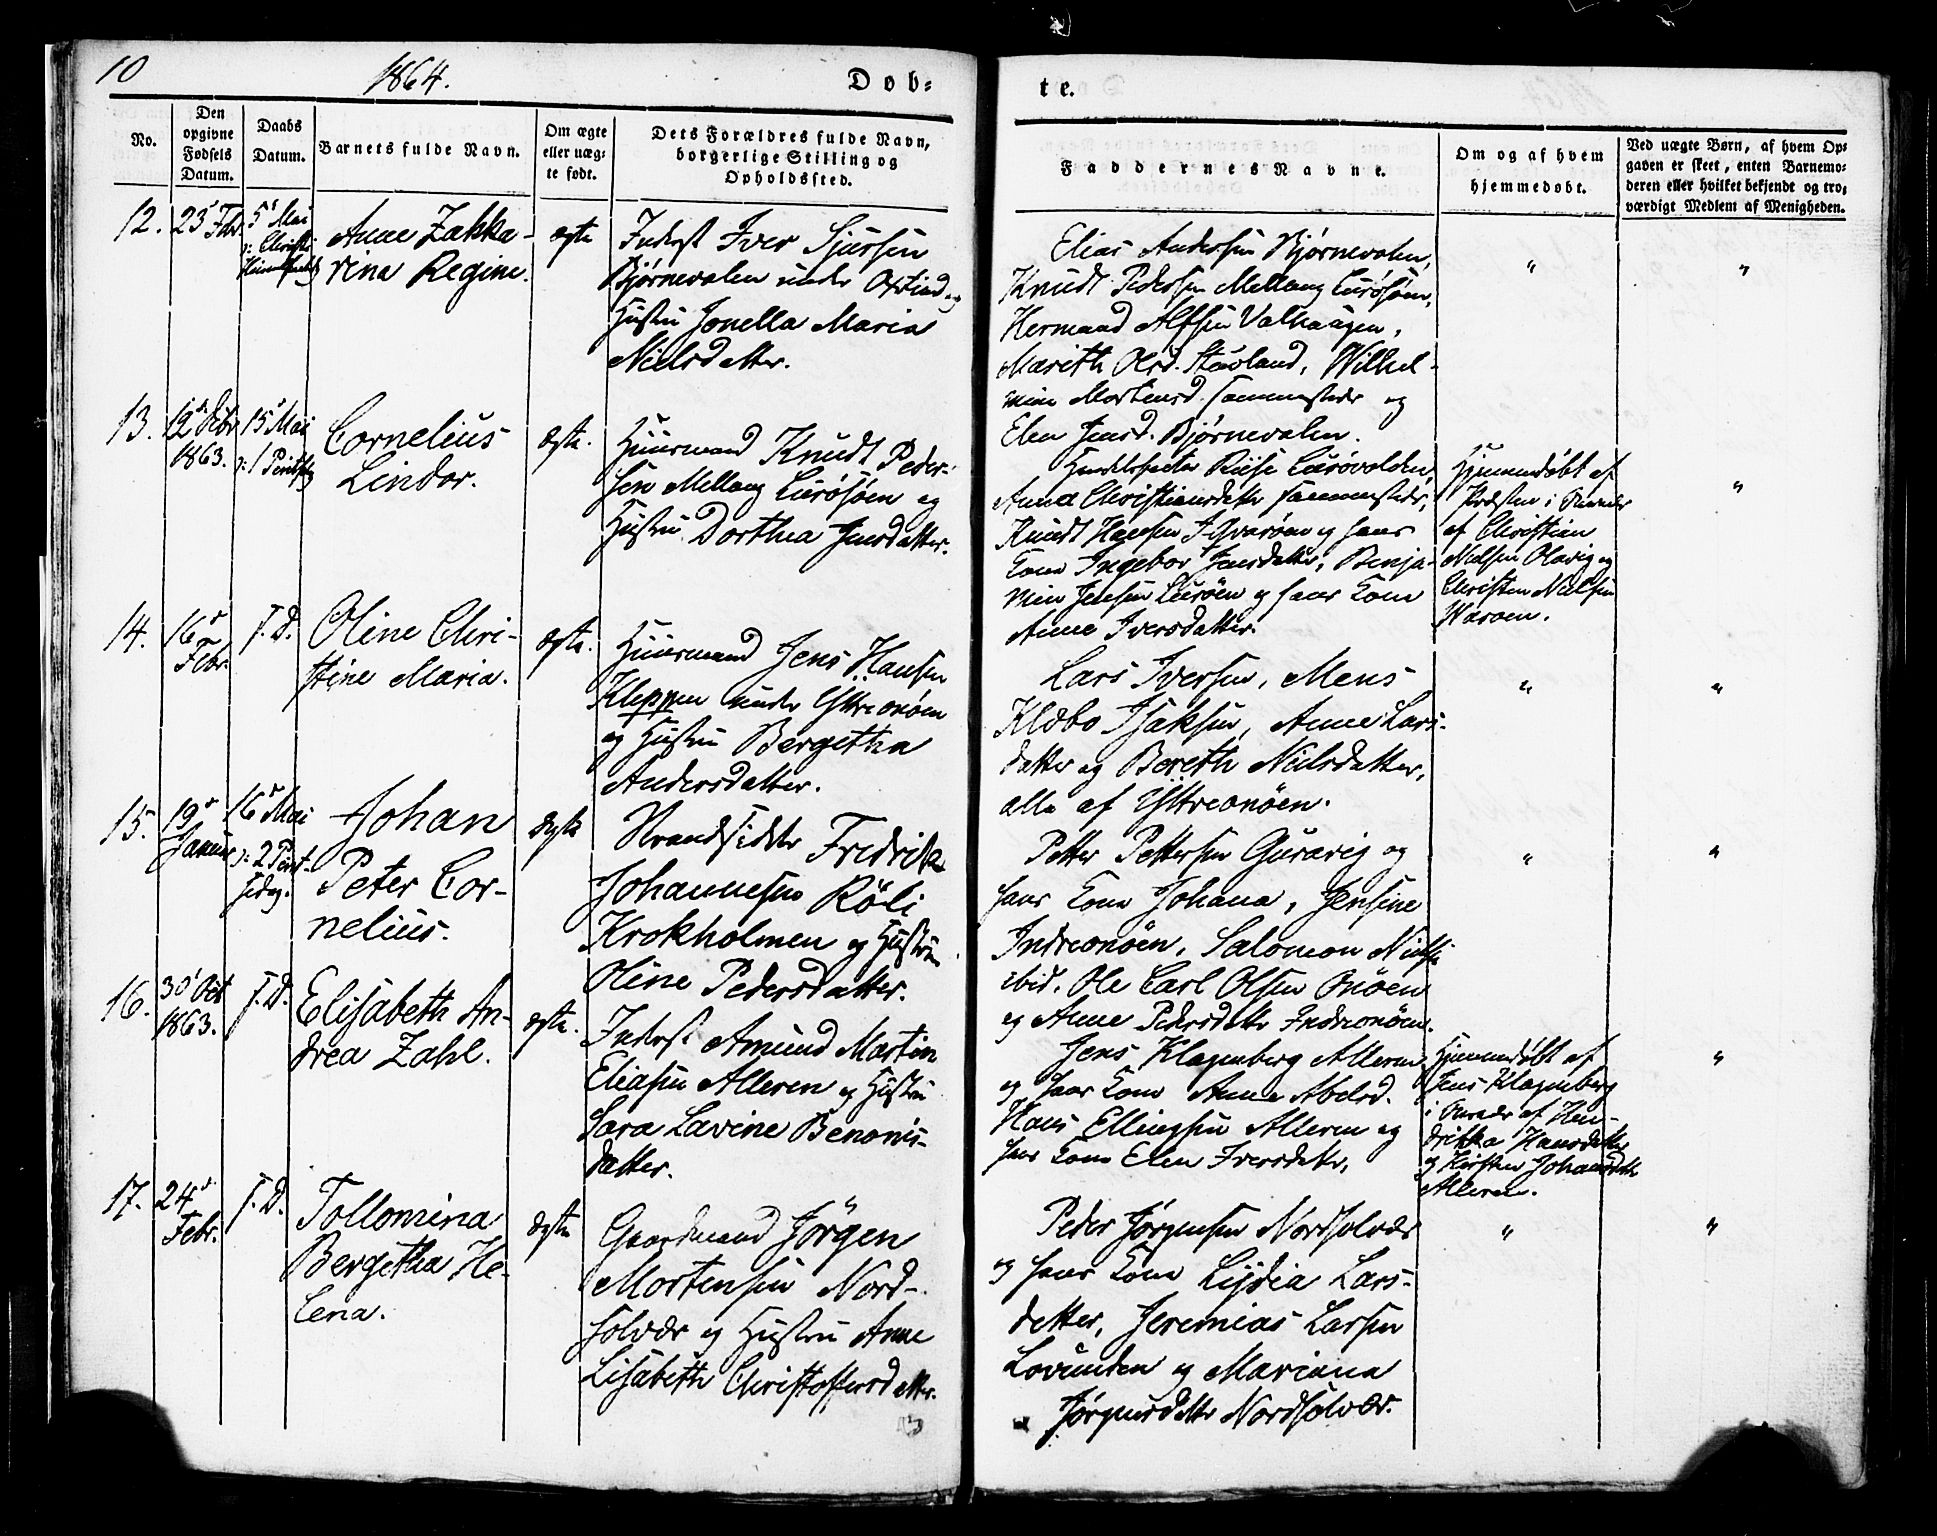 10
1864.
Døb-
te.
No.
Den opgivne Fødsels Datum.
Daabs Datum.
Barnets fulde Navn.
Om ægte eller uæg-te født.
Dets Forældres fulde Navn, borgerlige Stilling og Opholdssted.
Faddernes Navne.
Om og af hvem hjemmedøbt.
Ved uægte Børn, af hvem Op-gaven er skeet, enten Barnemo-deren eller hvilket bekjendt og tro-værdigt Medlem af Menigheden.
12.
23 Febr
5 Mai
Christi
Anne Zakka-
rina Regine.
ægte
Inderst Iver Sjursen
Bjørnevalen under
Hustru Jonella Maria
Nielsdatter.
Elias Andersen Bjørnevalen,
Knudt Pedersen Mellang Lurösöen,
Hermand Alfsen Valhaugen,
Marith Olsd. Stuvland, Wilhel-
mine Mortensd. sammesteds og
Elen Jensd. Bjørnevalen.
"
"
13.
12 Octbr
1863.
15 Mai
Cornelius
Lindor.
ægte.
Huusmand Knudt Peder-
sen Mellang Lurösöen og
Hustru Dorthea Jensdatter.
Riise Lurövolden,
Anna Christiansdatter sammesteds,
Knudt Hansen Qvarøen og hans
Kone Ingebor Jensdatter, Benja-
min Jensen Luröen og hans Kone
Anne Iversdatter.
Hjemmedøbt af
Præsten i
af Christian
Nielsen Olavig og
Christen Nielsen
Waroen.
"
14.
16
Febr.
S. D.
Oline Chri-
stine Maria.
ægte.
Huusmand Jens Hansen
Kleppen under Ytreonøen
og Hustru Bergitha
Andersdatter.
Lars Iversen, Mens
Klæbo Isaksen, Anne Lars-
datter og Bereth Nielsdatter,
alle af Yttreonöen.
"
"
15.
19
Januar
16 Mai
2 Pint-
sedag.
Johan
Peter Cor-
nelius.
ægte
Strandsidder Fredrik
Johannesen Röli
Krokholmen og Hustru
Oline Pedersdatter.
Petter Pettersen Guravig og
hans Kone Johana, Jensine
Indreonöen, Salomon Niels
ibid. Ole Carl Olsen Onöen
og Anne Pedersdatter Indreonöen.
"
"
16.
30 Oct
1863.
S. D.
Elisabeth An-
drea Zahl.
ægte.
Inderst Amund Martin
Eliasen Alleren og Hustru
Sara Lavine Benonis-
datter.
Jens Klagenberg Alleren
og hans Kone Anne Abelsd.
Hans Ellingsen Alleren og
hans Kone Elen Iversdatter.
Hjemmedøbt af
Jens Klagenberg
i Overvær af Hen-
drikka Hansdatter
og Kirsten Johansdatter
Alleren.
"
17.
24
Febr.
S. D.
Tollomina
Bergetha He-
lena.
ægte
Gaardmand Jörgen
Mortensen Nord-
solvær og Hustru Anne
Lisabeth Christoffersdatter.
Peder Jørgensen Nordsolvær
og hans Kone Lijdia Lars-
datter, Jeremias Larsen
Lovunden og Mariana
Jørgensdatter Nordsolvær.
"
"